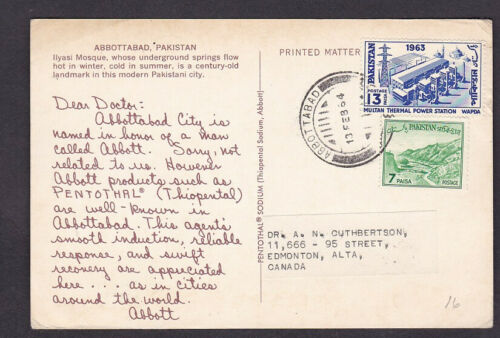 ABBOTTABAD, PAKISTAN
Ilyasi Mosque, whose underground springs flow
hot in winter, cold in summer, is a century-old
landmark in this modern Pakistani city.
PRINTED MATTER
Dear Doctor:
Abbottabad City is
named in honor of a man
called Abbott. Sorry, not
related to us. However
Abbott products such as
PENTOTHAL® (Thiopental)
are well-known in
Abbottabad. This agent's
smooth induction, reliable
response, and swift
recovery are appreciated
here . . . as in cities
around the world.
Abbott
PENTOTHAL® SODIUM (Thiopental Sodium, Abbott)
1963
PAKISTAN
POSTAGE
13 PAISA
MULTAN THERMAL POWER STATION WAPDA
ABBOTTABAD
13 FEB 64
ABBOTTABAD
PAKISTAN
7
PAISA
POSTAGE
DR. A. N. CUTHBERTSON,
11,666 - 95 STREET,
EDMONTON, ALTA,
CANADA
16